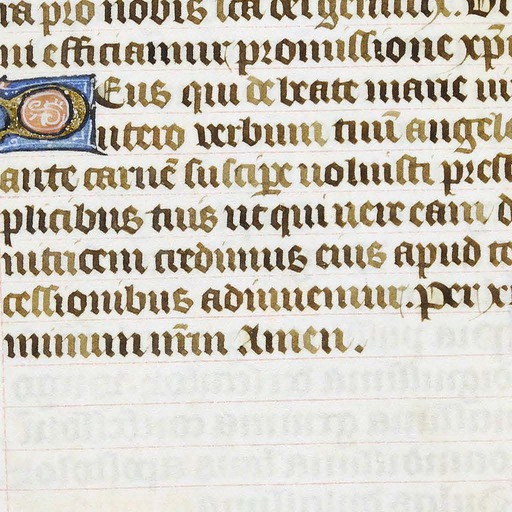 ra pro nobis sc̄a dei genitrix. Vt
ni efficiamur promissione xp̄i
Deus qui de beate marie vir
utero verbum tuū angelo
ante carnē suscipe voluisti prest
plicibus tuis ut qui vere eam d
nitricem credimus eius apud te
cessionibus adiuvemur. Per xp
minum nr̄m Amen.